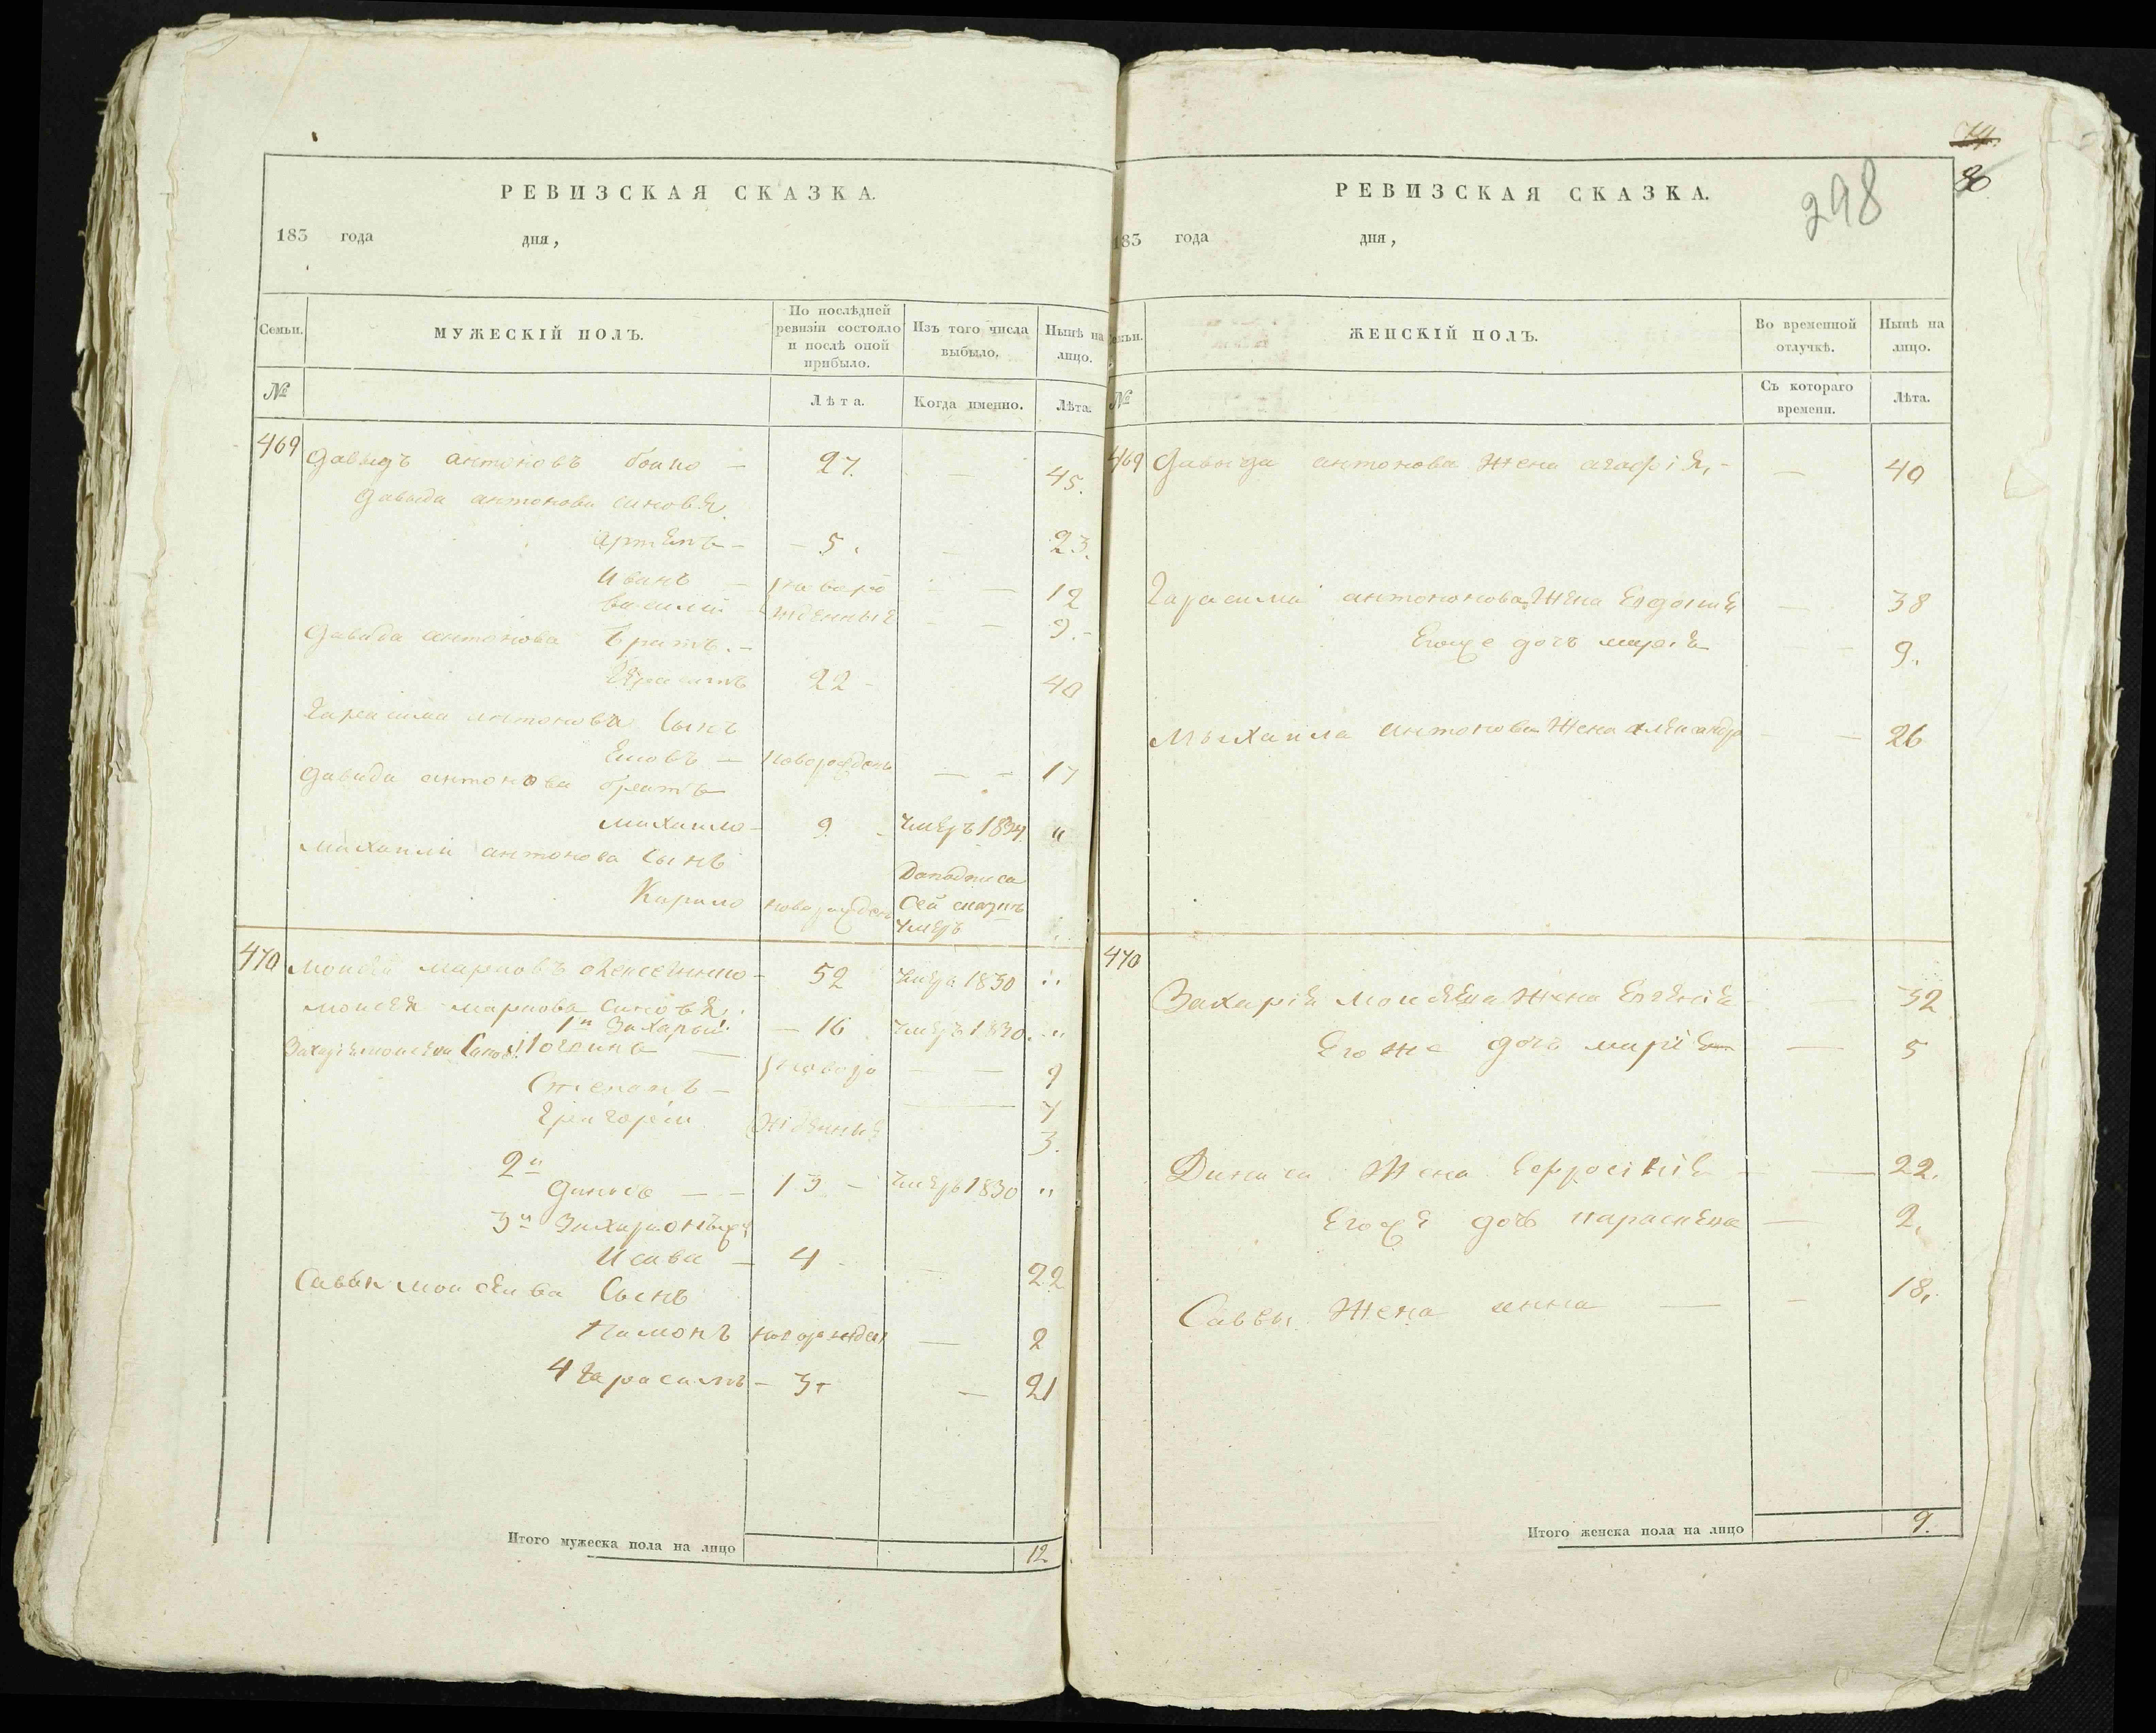 РЕВИЗСКАЯ СКАЗКА.
183 года дня,
Семьи. МУЖЕСКІЙ ПОЛЪ. По послѣдней ревизіи состояло и послѣ оной прибыло. Изъ того числа выбыло. Нынѣ на лицо.
№ Лѣта. Когда именно. Лѣта.
469 Давыдъ антоновъ — 27. — 45.
Давыда антонова синовя
— 5. — 23.
Иванъ — новоро — 12
василий ждённыя — 9.
Давида антонова братъ. —
22 — 40
Гарасима антонова Сынъ
новорожденъ — — 17
Давида антонова братъ
михаило — 9 умеръ 1834 "
михаила антонова Сынъ
До подписа
Кирило новорожденъ Сей сказки
умеръ
470 моисей марковъ — 52 умеръ 1830 "
моисея маркова синовя
1й Захарый — 16 умеръ 1830. "
новоро — — 9
Степанъ — — 7
Григорий жденныя 3.
2й
— — 13 — умеръ 1830 "
3й
4 — 22
Савы моисеива Сынъ
новорожден — 2
4 Гарасимъ — 3 — 21
Итого мужеска пола на лицо 12
74.
80
298
РЕВИЗСКАЯ СКАЗКА.
183 года дня,
Семьи. ЖЕНСКІЙ ПОЛЪ. Во временной отлучкѣ. Нынѣ на лицо.
№ Съ котораго времени. Лѣта.
469 Давыда антонова жена агафія, — — 40
Гарасима жена Евдокия — 38
Егоже дочъ марія — 9.
Мыхаила антонова Жена александра — 26
470
Захария Моисеива жена Евгения — 32
Его же дочъ марія — 5
Дениса Жена Ефросінія — 22.
Егоже дочъ параскева — 2.
Саввы Жена анна — — 18.
Итого женска пола на лицо 9.